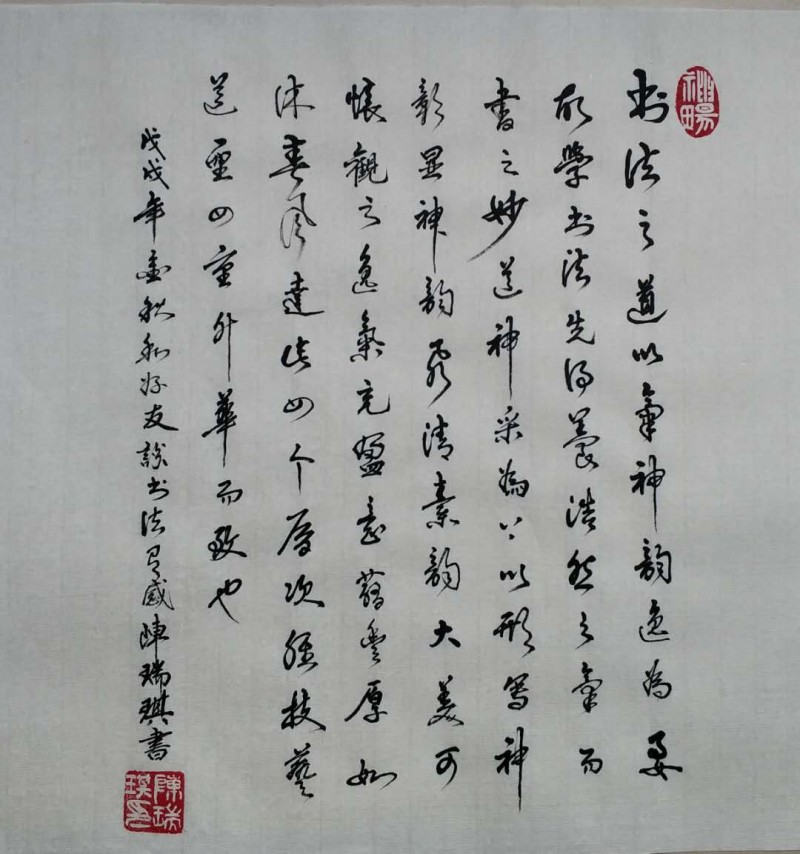 書法之道以氣神韻逸為要
故學書法先得養浩然之氣而
書之妙道神采為上以形寫神
彰显神韻更清素韻大美可
懷觀之逸氣充盈意蘊豐厚如
沐春風達此四个层次绝技藝
道重四重升華而致也
戊戌年金秋和好友談書法有感陳瑞琪書